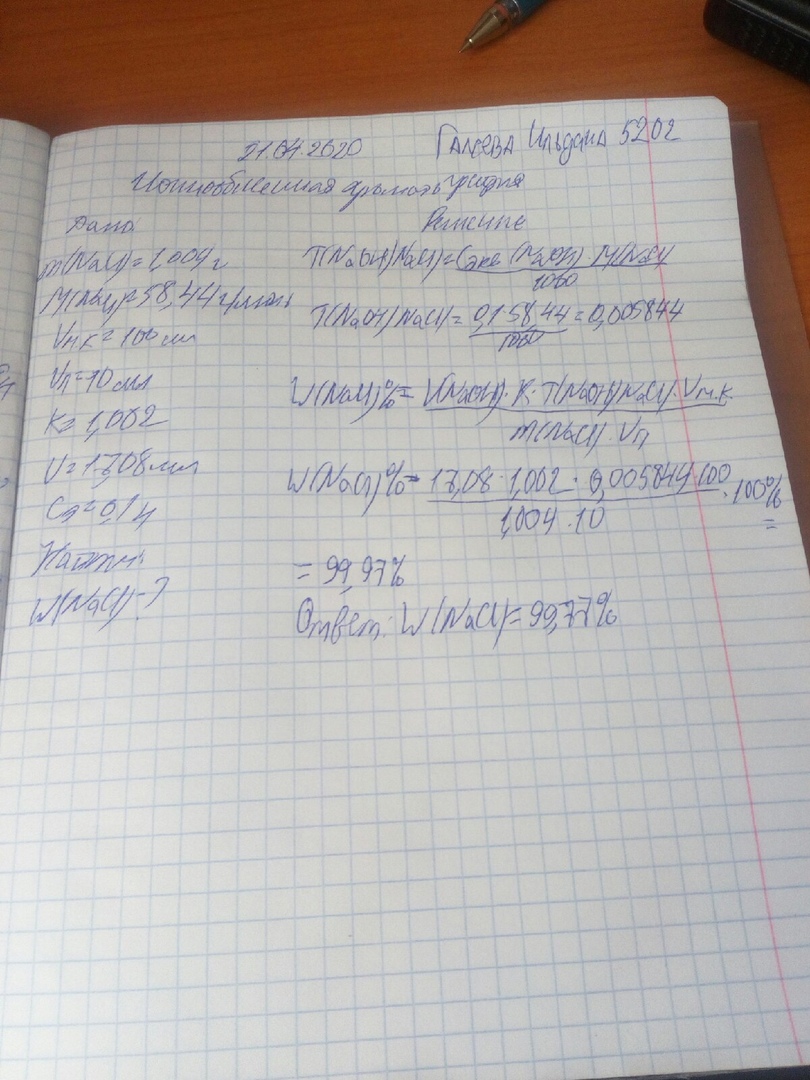 21.04.2020 Галеева Ильдана 5202
Ионнообменная хроматография
Дано:
m(NaCl)=1,004 г
M(NaCl)=58,44 г/моль
Vм.к=100 мл
Vп=10 мл
K=1,002
V=17,08 мл
Cэ=0,1 н
Найти:
W(NaCl)-?
Решение
T(NaOH/NaCl)=Cэкв(NaOH)·M(NaCl)
1000
T(NaOH/NaCl)=0,1·58,44=0,005844
1000
W(NaCl)%=V(NaOH)·K·T(NaOH/NaCl)·Vм.к.
m(NaCl)·Vп
W(NaCl)%=17,08·1,002·0,005844·100·100%
1,004·10 =
=99,97%
Ответ: W(NaCl)=99,77%